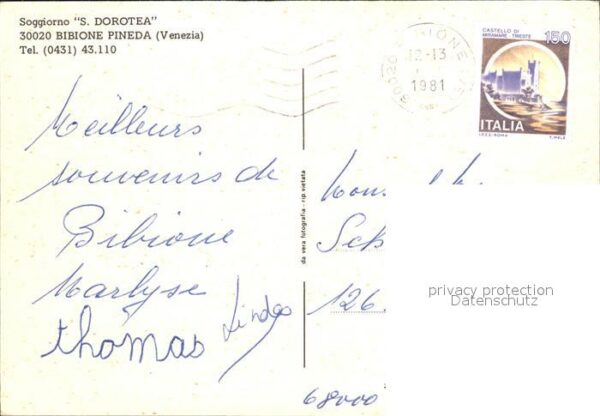 Soggiorno "S. DOROTEA"
30020 BIBIONE PINEDA (Venezia)
Tel. (0431) 43.110
BIBIONE
12-13
1981
30020
CASTELLO DI
MIRAMARE TRIESTE
150
ITALIA
I.P.Z.S. ROMA
Meilleurs
souvenirs de
Bibione
Marlyse
thomas
da vera fotografia - rip. vietata
Sch
126
68000
privacy protection
Datenschutz